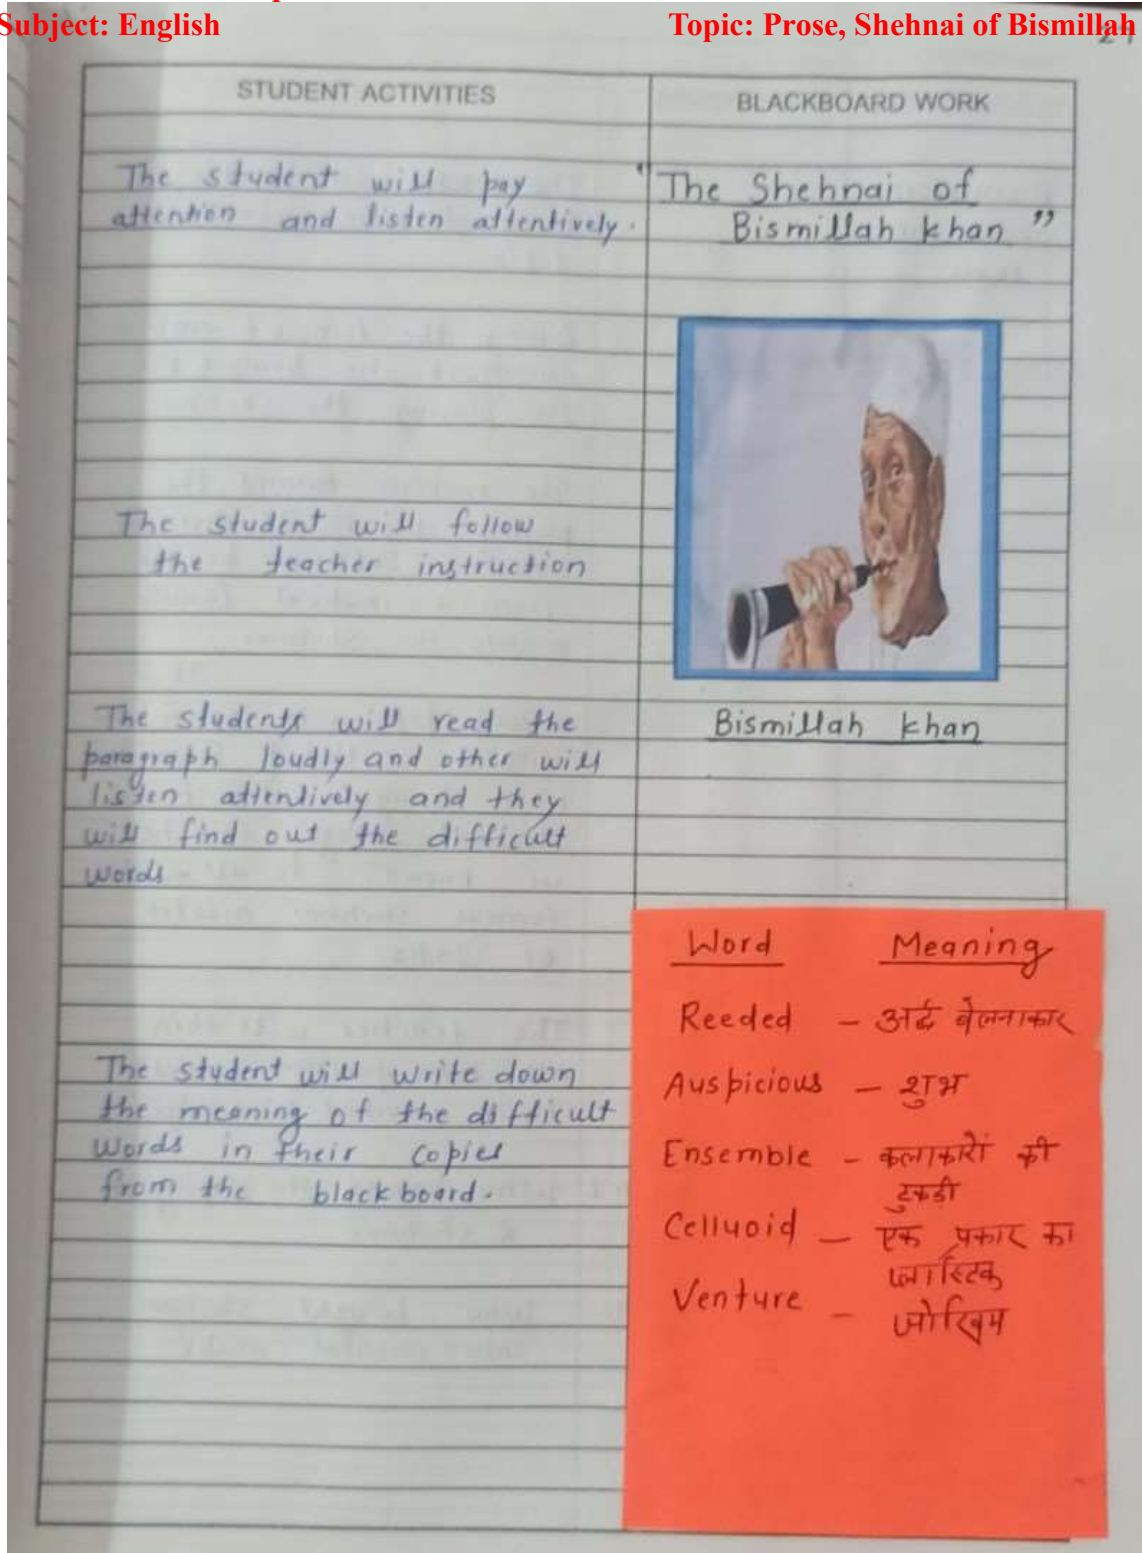 Subject: English
Topic: Prose, Shehnai of Bismillah
STUDENT ACTIVITIES
The student will pay
attention and listen attentively.
The student will follow
the teacher instruction
The students will read the
paragraph loudly and other will
listen attentively and they
will find out the difficult
words
The student will write down
the meaning of the difficult
words in their copies
from the blackboard.
BLACKBOARD WORK
"The Shehnai of
Bismillah khan"
Bismillah khan
Word Meaning
Reeded - अर्द्ध बेलनाकार
Auspicious - शुभ
Ensemble - कलाकारों की
टुकड़ी
Celluoid - एक प्रकार का
प्लास्टिक
Venture - जोखिम